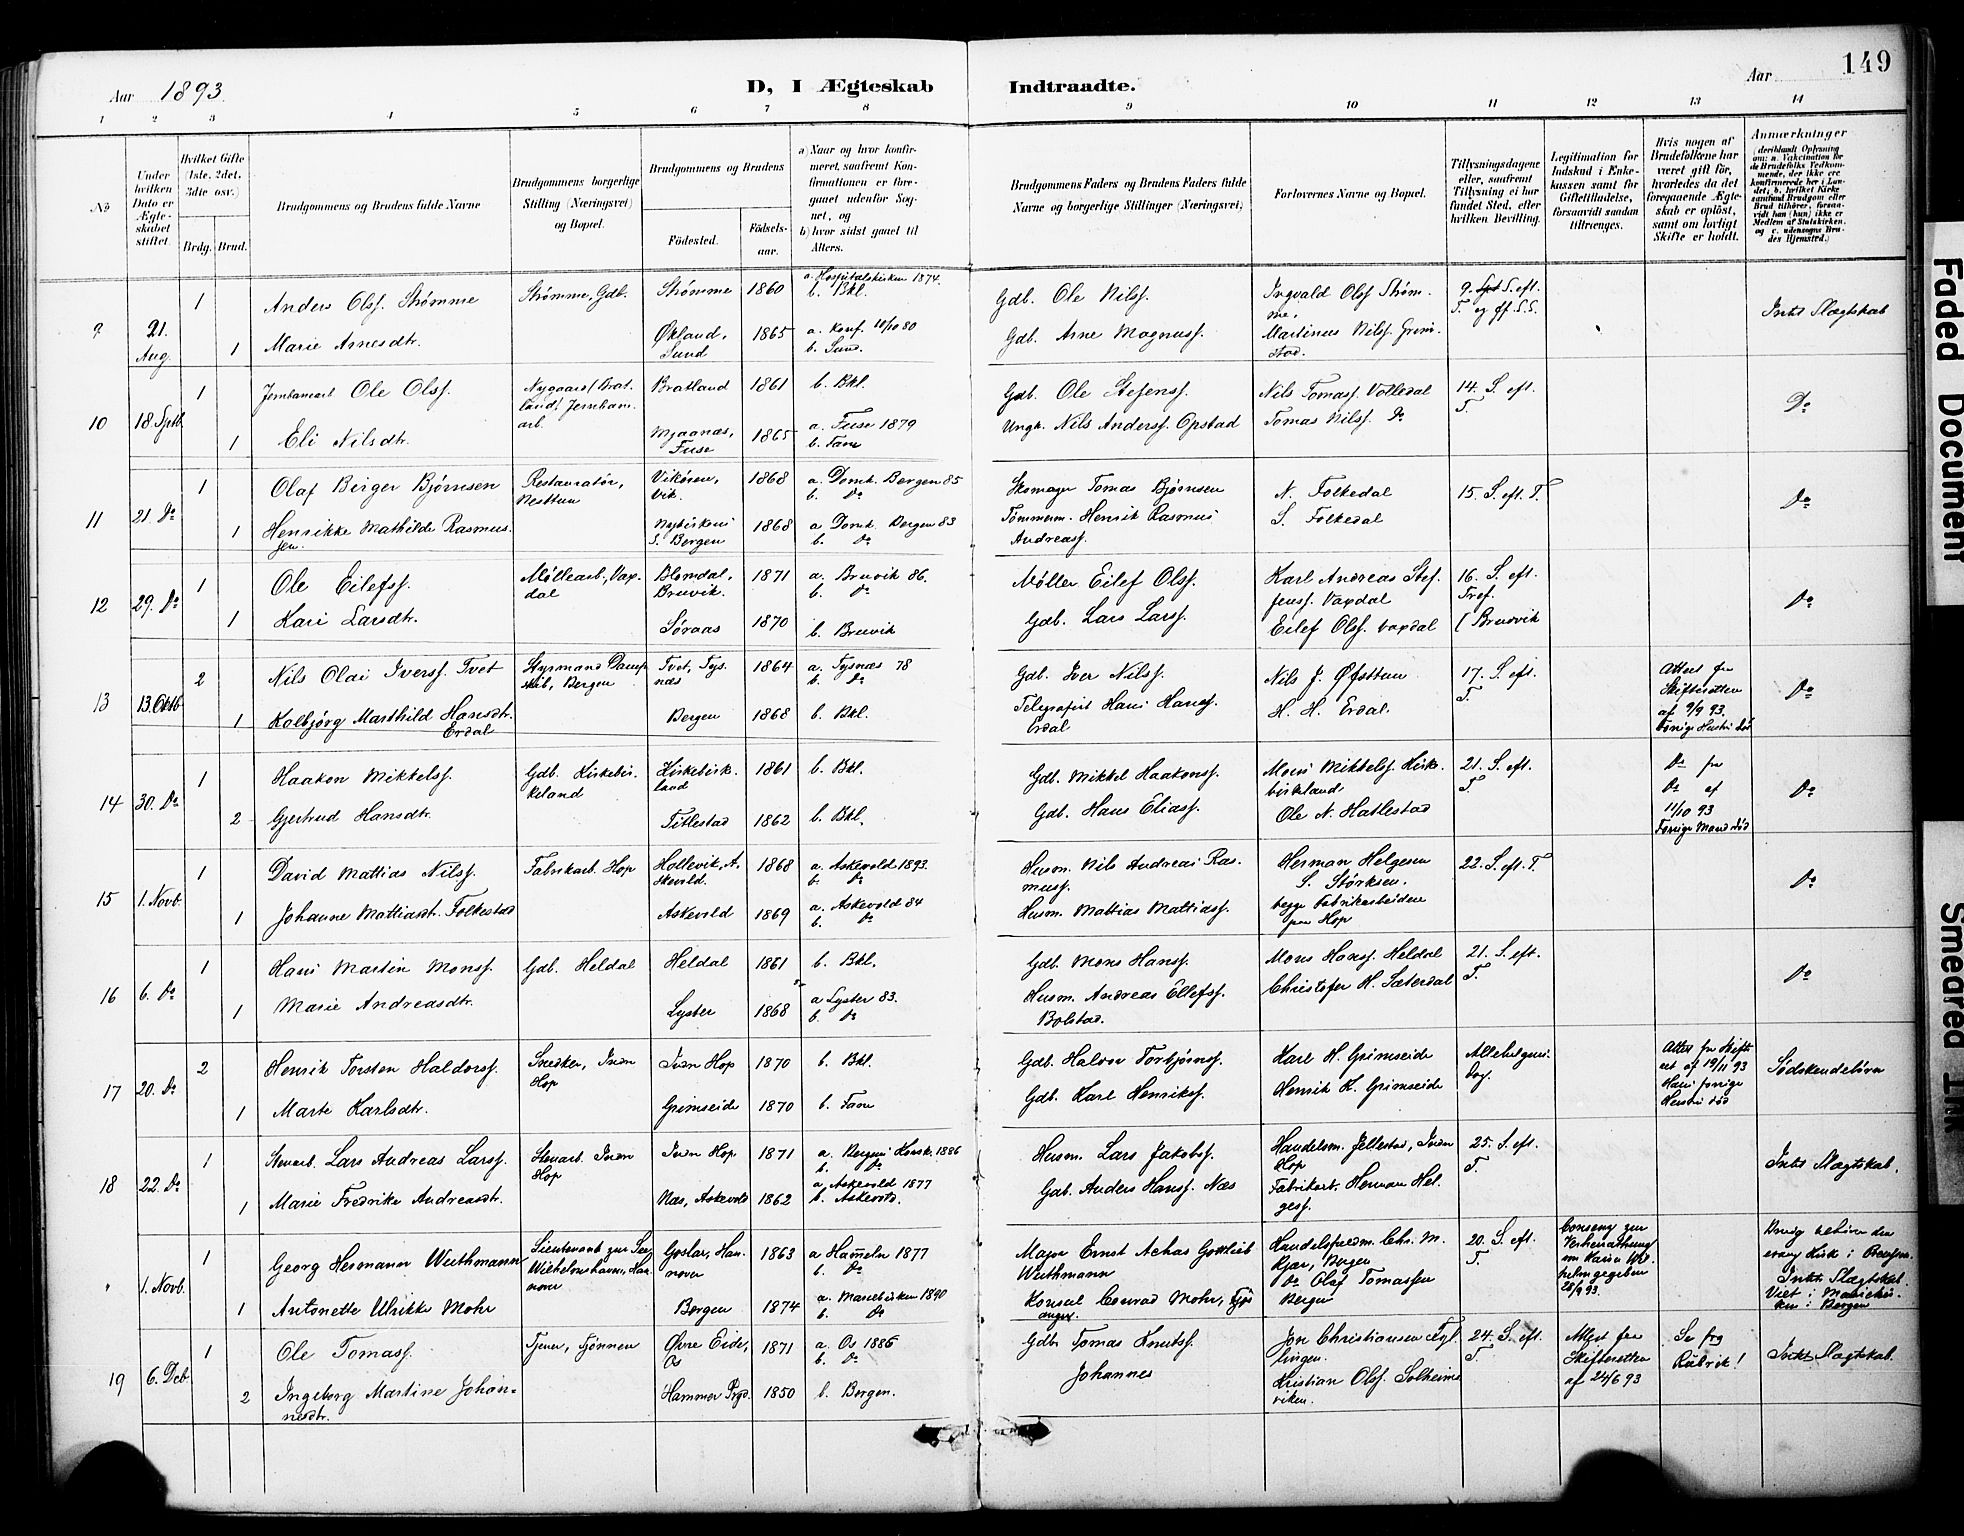 149
Aar 1893.
D, I Ægteskab Indtraadte.
Aar
1 2 3 4 5 6 7 8 9 10 11 12 13 14
No
Under hvilken Dato er Ægteskabet stiftet.
Hvilket Gifte (1ste, 2det, 3die osv.)
Brdg. Brud.
Brudgommens og Brudens fulde Navne
Brudgommens borgerlige Stilling (Næringsvei) og Bopæl.
Brudgommens og Brudens
Fødested. Fødsels-aar.
a) Naar og hvor konfirmeret, saafremt Konfirmationen er foregaaet udenfor Sognet, og
b) hvor sidst gaaet til Alters.
Brudgommens Faders og Brudens Faders fulde Navne og borgerlige Stillinger (Næringsvei)
Forlovernes Navne og Bopæl.
Tillysningsdagene eller, saafremt Tillysning ei har fundet Sted, efter hvilken Bevilling.
Legitimation for Indskud i Enkekassen samt for Giftetilladelse, forsaavidt saadan tiltrænges.
Hvis nogen af Brudefolkene har været gift før, hvorledes da det foregaaende Ægteskab er opløst, samt om lovligt Skifte er holdt.
Anmærkninger
(deriblandt Oplysning om: a. Vakcination for de Brudefolks Vedkommende, der ikke ere konfirmerede her i Landet; b. hvilket Kirkesamfund Brudgom eller Brud tilhører, forsaavidt han (hun) ikke er Medlem af Statskirken, og c. udensogns Brudes Hjemsted.)
9 21. Aug. 1 Anders Olsf. Strømme Strømme, Gdb. Strømme 1860 a. Hospitalskirken 1874. b. Bkl. Gdb. Ole Nilsf. Ingvald Olsf Strømme. 9. S. eft. T. og ff. S.S. Intet Slægtskab
1 Marie Arnesdtr. Økland, Sund 1865 a. Konf. 10/10 80 b. Sund. Gdb. Arne Magnusf. Martinus Nilsf. Grimstad.
10 18. Sptb. 1 Jernbanearb Ole Olsf. Bratland 1861 b. Bkl. Gdb. Ole Stefensf. Nils Tomasf. Volledal 14. S. eft. T. Do
1 Eli Nilsdtr. Mjaanæs, Fuse 1865 a. Fuse 1879 b. Fane Ungk. Nils Andersf. Opstad Tomas Nilsf. Do
11 21. Do 1 Olaf Birger Bjørnsen Restauratør, Nesttun Vikøren, Vik. 1868 a. Domk. Bergen 85 b. Do Skomager Tomas Bjørnsen N. Folkedal 15. S. eft. T. Do
1 Henrikke Mathilde Rasmussen. Nykirkens S. Bergen 1868 a Domk. Bergen 83 b. Do Tømmerm. Henrik Rasmus Andreasf. S. Folkedal
12 29. Do 1 Ole Eilefsf. Møllearb., Vaxdal Blomdal, Bruvik. 1871 a. Bruvik 86. b. Do Møller Eilef Olsf. Karl Andreas Steffensf. Vaxdal 16. S. eft. Tref. Do
1 Kari Larsdtr. Søraas 1870 b. Bruvik Gdb. Lars Larsf. Eilef Olsf. Vaxdal ( Bruvik
13 13. Oktb 2 Nils Olai Iversf. Tvet Styrmand Dampskib, Bergen Tvet, Tysnæs 1864 a. Tysnæs 78 b. Do Gdb. Iver Nilsf. Nils J. Øfsttun 17. S. eft. T. Attest fra Skifteretten af 9/9 93. Forrige Hustru død Do
1 Kolbjørg Marthild Hansdtr. Erdal Bergen 1868 b. Bkl. Telegrafist Hans Hansf. Erdal H. H. Erdal.
14 30. Do 1 Haakon Mikkelsf. Gdb. Kirkebirkeland Kirkebirkeland 1861 b. Bkl. Gdb. Mikkel Haakonsf. Mons Mikkelsf. Kirkebirkeland 21. S. eft. T. Do fra Do af 11/10 93 Forrige Mand død Do
2 Gjertrud Hansdtr. Titlestad 1862 b. Bkl. Gdb. Hans Eliasf. Ole N. Hatlestad
15 1. Novb. 1 David Mattias Nilsf. Fabrikarb. Hop Hollevik, Askevold. 1868 a. Askevold 1893. b. Do Husm. Nils Andreas Rasmusf. Herman Helgesen 22. S. eft. T Do
1 Johanne Mattiasdtr. Folkestad Askevold 1869 a. Askevold 84 b. Do Husm. Mattias Mattiasf. S. Størksen. begge Fabrikarbeidere paa Hop
16 6. Do 1 Hans Martin Monsf. Gdb. Heldal Heldal 1861 b. Bkl. Gdb. Mons Hansf. Mons Hansf. Heldal 21. S. eft. T. Do
1 Marie Andreasdtr. Lyster 1868 a Lyster 83. b. Do Husm. Andreas Ellefsf. Bolstad. Christofer H. Sæterdal
17 20. Do 2 Henrik Torsten Haldorsf. Snedker, Indre Hop Indre Hop 1870 b. Bkl. Gdb. Haldor Torbjørnsf. Karl H. Grimseide Allehelgensdag. Attest fra Skifteret af 19/11 93 Hans forrige Hustru død Sødskendebørn
1 Marte Karlsdtr. Grimseide 1870 b. Fane Gdb. Karl Henriksf. Henrik K. Grimseide
18 22. Do 1 Stenarb. Lars Andreas Larsf. Stenarb. Indre Hop Indre Hop 1871 a. Bergens Korsk. 1886 b. Do Husm. Lars Jakobsf. Handelsm. Jellestad, Indre Hop 25. S. eft. T. Intet Slægtskab.
1 Marie Fredrike Andreasdtr. Næs, Askevold 1862 a. Askevold 1877 b. Askevold. Gdb. Anders Hansf. Næs Fabrikarb. Herman Helgesf.
1. Novb. 1 Georg Hermann Wuthmann Lieutenant zur See Wilhelmshaven, Hannover Goslar, Hannover 1863 a Hameln 1877 b. Do Major Ernst Achas Gottlieb Wuthmann Handelsfuldm. Chr. M. Kjær, Bergen 20. S. eft. T. Consens zur Verheirathung von Kaiser Wilhelm gegeben 28/9 93. Intet Slægtskab. Viet i Mariekirken i Bergen
1 Antonette Ulrikke Mohr Bergen 1874 a. Mariekirken 1890 b. Do Konsul Conrad Mohr, Fjøsanger Do Olaf Tomassen Bergen
19 6. Deb. 1 Ole Tomasf. Tjener, Tjønnen Øvre Eide, Os 1871 a. Os 1886 b. Do Gdb. Tomas Knutsf. Jon Christiansen Fyllingen. 24. S. eft. T. Attest fra Skifteretten af 24/6 93 Se frg Rubrik! Intet Slægtskab.
2 Ingeborg Martine Johannesdtr. Hammer Prgd. 1850 b. Bergen. Johannes Kristian Olsf. Solheimsviken.
Faded Document
Smeared Ink